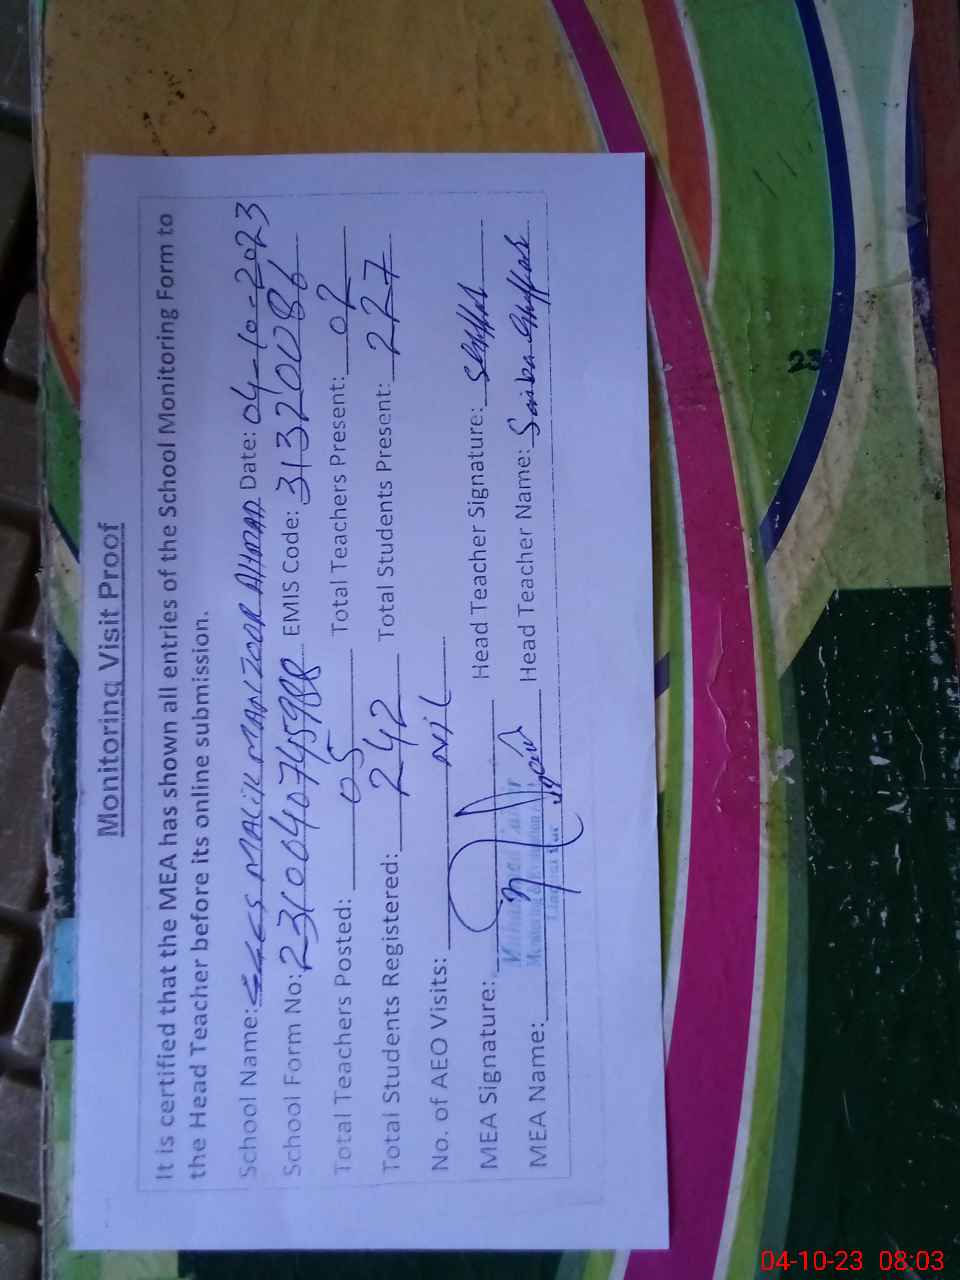 Monitoring Visit Proof
It is certified that the MEA has shown all entries of the School Monitoring Form to
the Head Teacher before its online submission.
School Name: MALIK MANZOOR AHMAD Date: 04-10-2023
School Form No: EMIS Code: 31320086
Total Teachers Posted: 05 Total Teachers Present: 02
Total Students Registered: 242 Total Students Present: 227
No. of AEO Visits: Nil
MEA Signature: Head Teacher Signature: SGhffar
MEA Name: Head Teacher Name: Saiba Ghffar
23
04-10-23 08:03